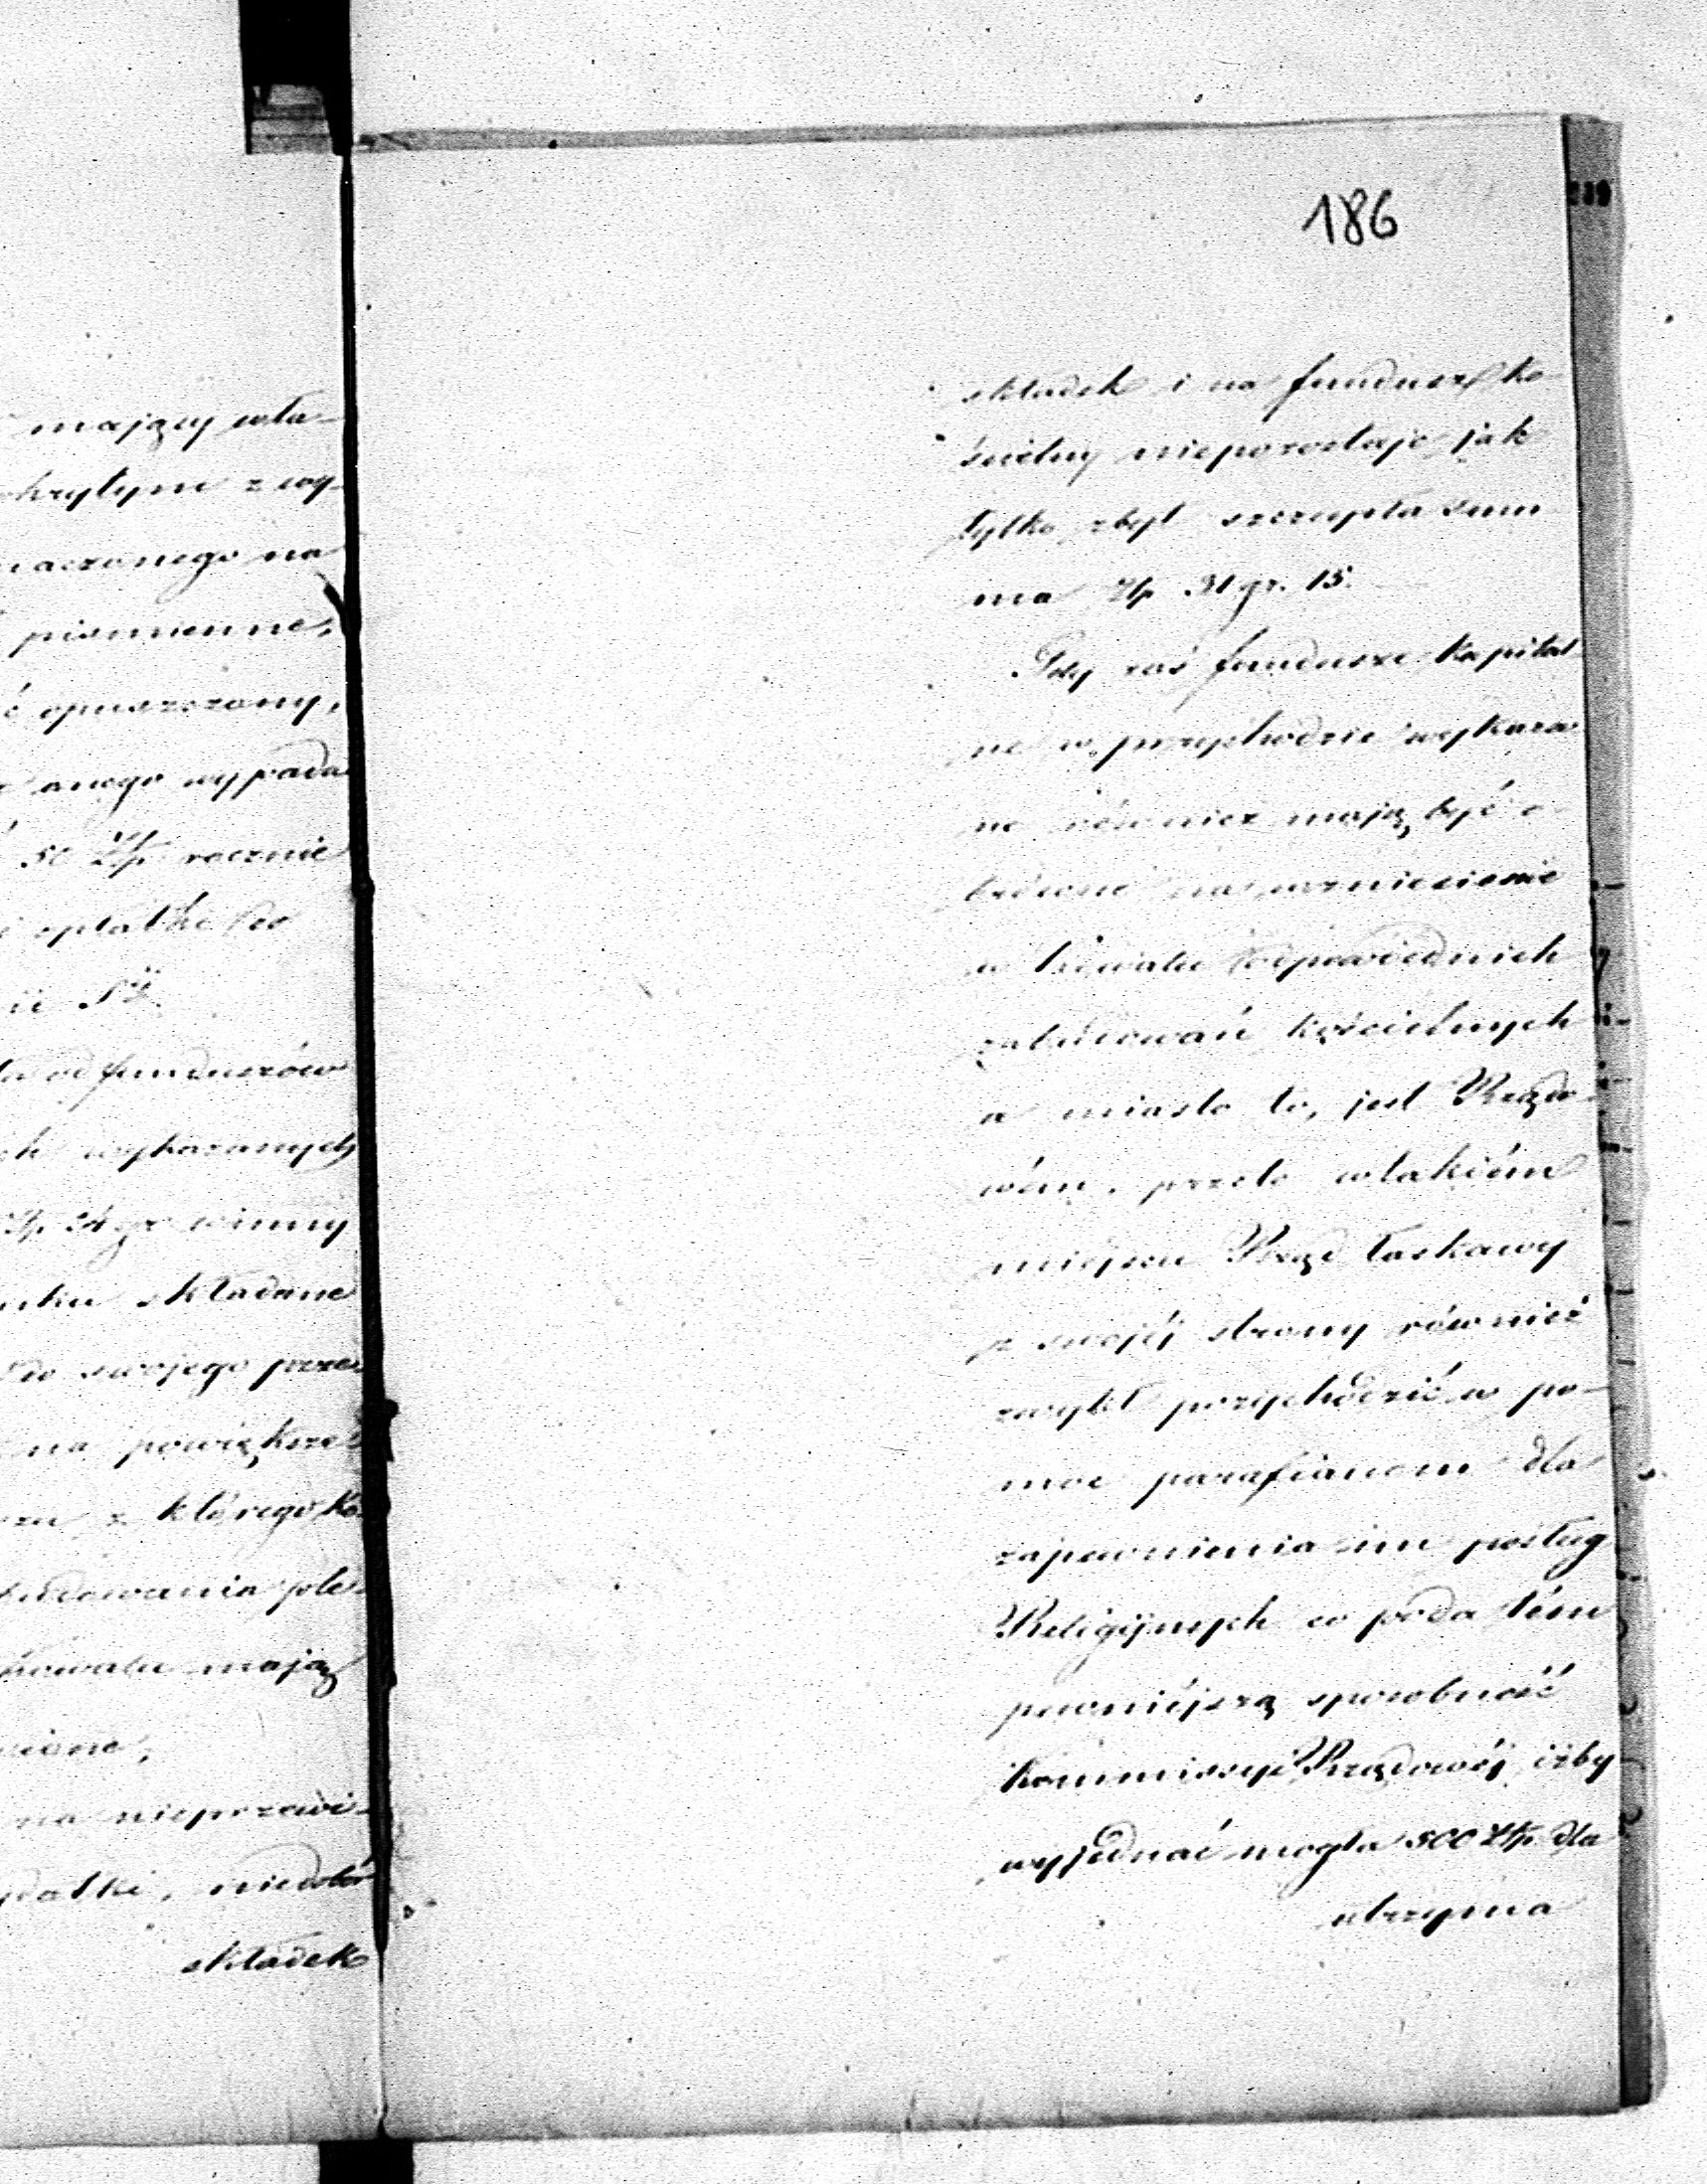 mający wła-
krytym z wy-
naczonego na
piśmienne,
ć opuszczony,
onego wypada
50 Złp. rocznie
opłatki do
od funduszów
wykazanych
Złp. 24 gr winny
składane
do swojego prze-
na powiększe-
z którego ko-
budowania ple-
mają
na nieprzewi-
datki, niedobór
składek
186
składek i na fundusz ko-
ścielny niepozostaje jak
tylko zbyt szczupła sum
ma Złp 31 gr. 15.
Gdy zaś fundusze kapital
ne w przychodzie wykaza
ne również mają być o-
brócone na wzniesienie
w trwałe odpowiednich
zabudowań kościelnych
a miasto to, jest Rządo-
wém, przeto w takiém
miejscu Rząd łaskawy
z swojéj strony również
zwykł przychodzić w po-
moc parafianom dla
zapewnienia im posług
Religijnych co poda tém
pewniéjszą sposobność
Kommissyi Rządowéj iżby
wyjednać mogła 500 Złp. dla
utrzyma